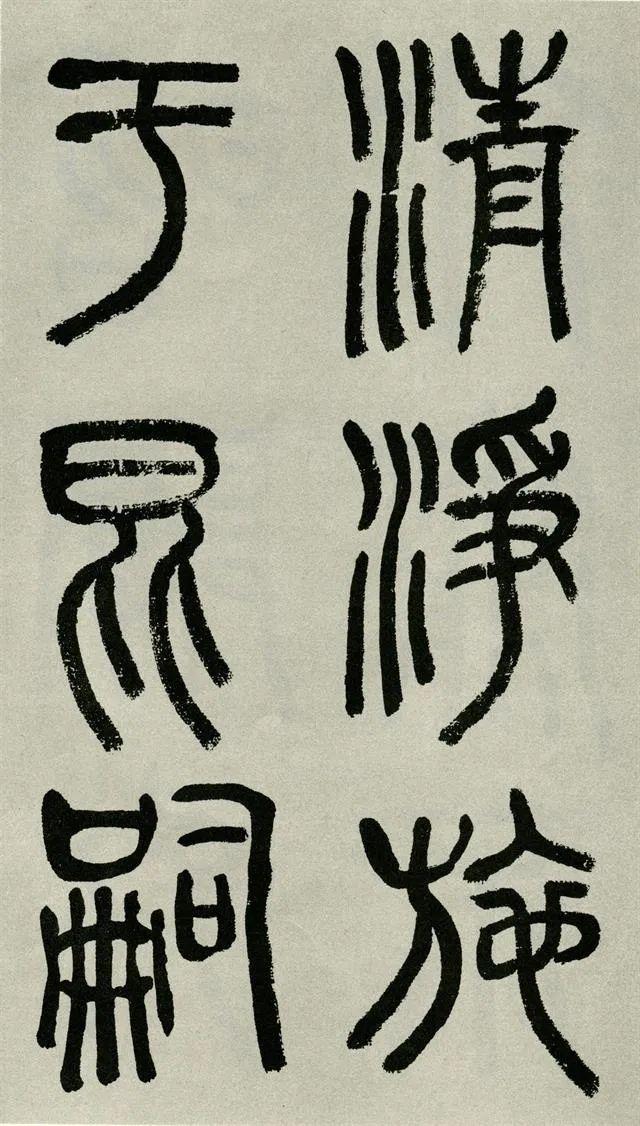 清淨施
于昆嗣